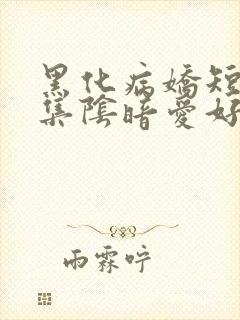 黑化病嬌短
集陰暗愛好
雨霖咛